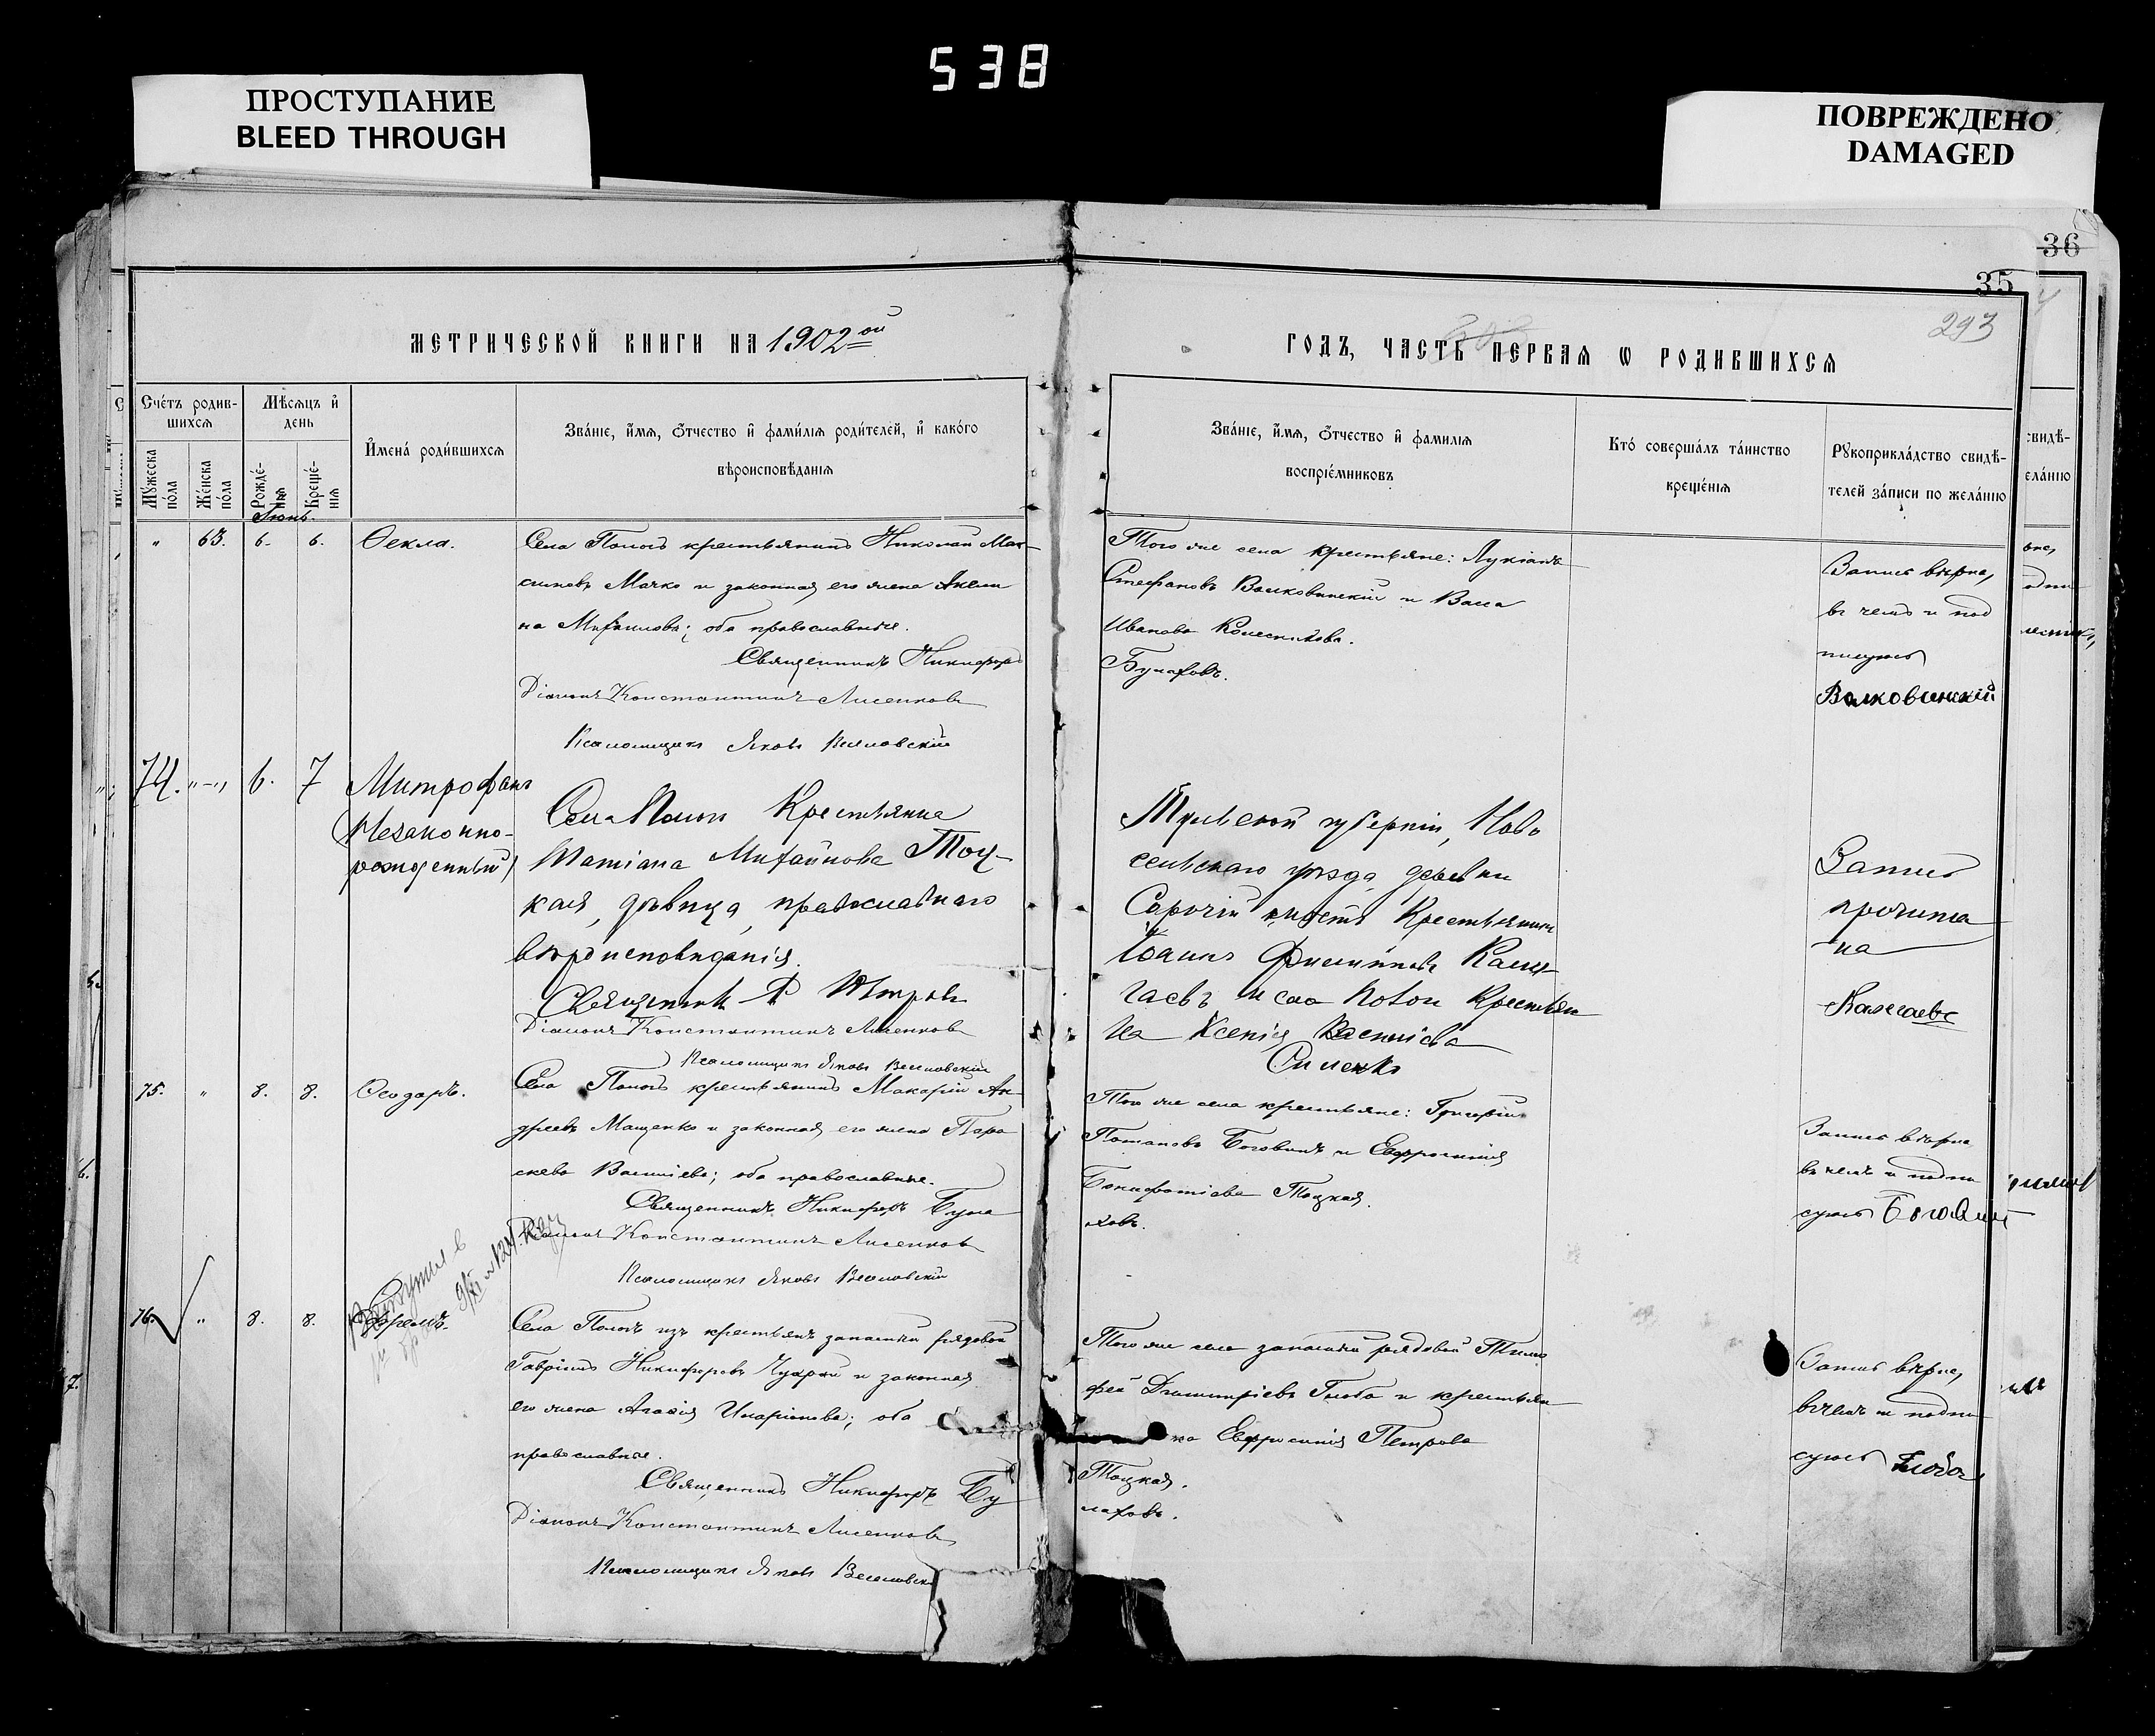 538
ПРОСТУПАНИЕ
BLEED THROUGH
ПОВРЕЖДЕНО
DAMAGED
36
35
293
МЕТРИЧЕСКОЙ КНИГИ НА 1902 ой
ГОДЪ, ЧАСТЬ ПЕРВАЯ Ѡ РОДИВШИХСЯ
Счетъ родив-
шихся
Мѣсяцъ и
день
Мужеска
пола
Женска
пола
Рожде-
нія
Креще-
нія
Имена родившихся
Званіе, имя, отчество и фамилія родителей, и какого
вѣроисповѣданія
Званіе, имя, отчество и фамилія
воспріемниковъ
Кто совершалъ таинство
крещенія
Рукоприкладство свидѣ-
телей записи по желанію
Іюнь.
" 63. 6. 6. Ѳекла.
Села Пологъ крестьянинъ Николай Мак-
симовъ Мачко и законная его жена Акели
на Михаилова; оба православные.
Священникъ Никифоръ
Діаконъ Константинъ Лисенковъ
Псаломщикъ Яковъ Веселовскій
Того же села крестьяне: Лукіанъ
Стефановъ Волковинскій и Васса
Иванова Колесникова.
Булаховъ.
Запись вѣрна,
въ чемъ и под
писуюсь
Волковинскій
74. "-" 6. 7 Митрофанъ
(Незаконно-
рожденный)
Села Пологъ Крестьянка
Татіана Михайлова Тоц-
кая, дѣвица, православнаго
вѣроисповѣданія.
Священникъ П. Петровъ
Діаконъ Константинъ Лисенковъ
Псаломщикъ Яковъ Веселовскій
Тульской губерніи, Ново
сельскаго уѣзда, деревни
Крестьянинъ
Іоаннъ Филипповъ
Крестьян
ка Ксенія Васильева
Запись
прочита
на
75. " 8. 8. Ѳеодоръ.
Села Пологъ крестьянинъ Макарій Ан-
дреевъ Мащенко и законная его жена Пара
скева Василіева; оба православные.
Священникъ Никифоръ Була
Діаконъ Константинъ Лисенковъ
Псаломщикъ Яковъ Веселовскій
Того же села крестьяне: Григорій
Потаповъ Боговинъ и Евфросинія
Бонифатіева Тоцкая.
ховъ.
Запись вѣрна
въ чемъ и подпи
суюсь Боговинъ
76. " 8. 8. Ефремъ.
Села Пологъ изъ крестьянъ запасный рядовой
Гавріилъ Никифоровъ Чухрай и законная
его жена Агафія Иларіонова; оба
православные.
Священникъ Никифоръ Бу
Діаконъ Константинъ Лисенковъ
Псаломщикъ Яковъ Веселовскі
Того же села запасный рядовой Тимо
фей Димитріевъ Глоба и крестьян
ка Евфросинія Петрова
Тоцкая.
лаховъ.
Запись вѣрна,
въ чемъ и подпи
суюсь Глоба